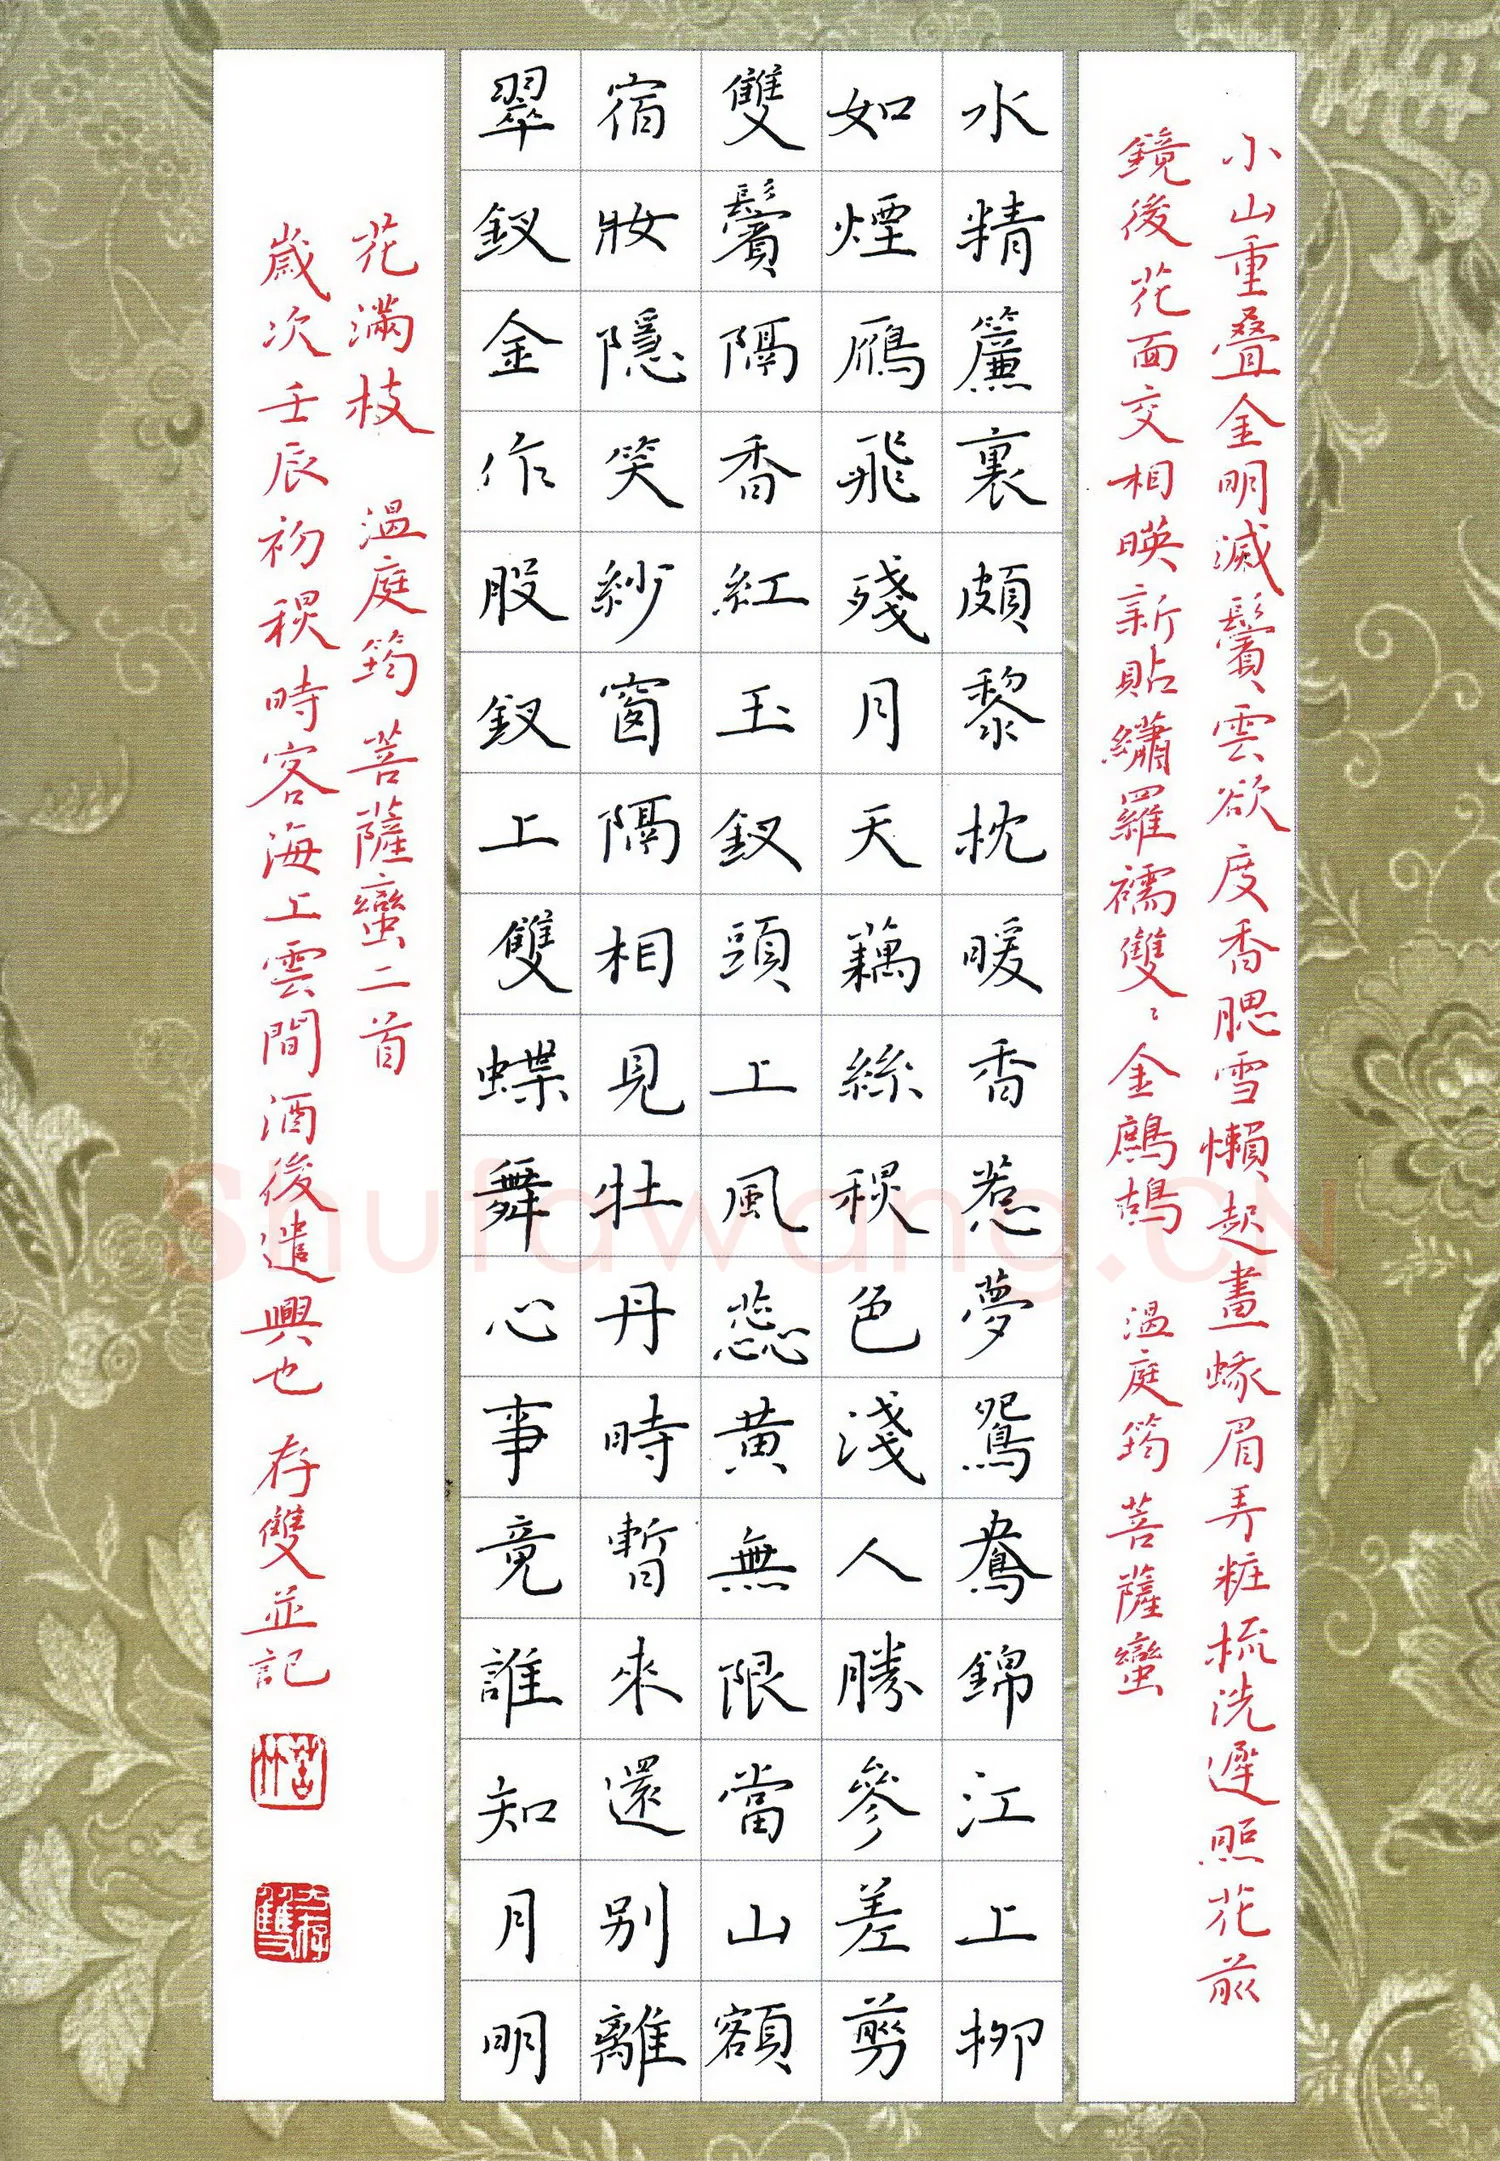 小山重疊金明滅鬢雲欲度香腮雪懶起畫蛾眉弄粧梳洗遲照花前
鏡後花面交相暎新貼繡羅襦雙〻金鷓鴣 溫庭筠 菩薩蠻
水精簾裏頗黎枕暖香惹夢鴛鴦錦江上柳
如煙鴈飛殘月天藕絲秌色淺人勝參差剪
雙鬢隔香紅玉釵頭上風蕊黃無限當山額
宿妝隱笑紗窗隔相見牡丹時暫來還別離
翠釵金作股釵上雙蝶舞心事竟誰知月明
花滿枝 溫庭筠 菩薩蠻二首
歲次壬辰初秌時客海上雲間酒後遣興也 存雙並記
Shufawang.CN